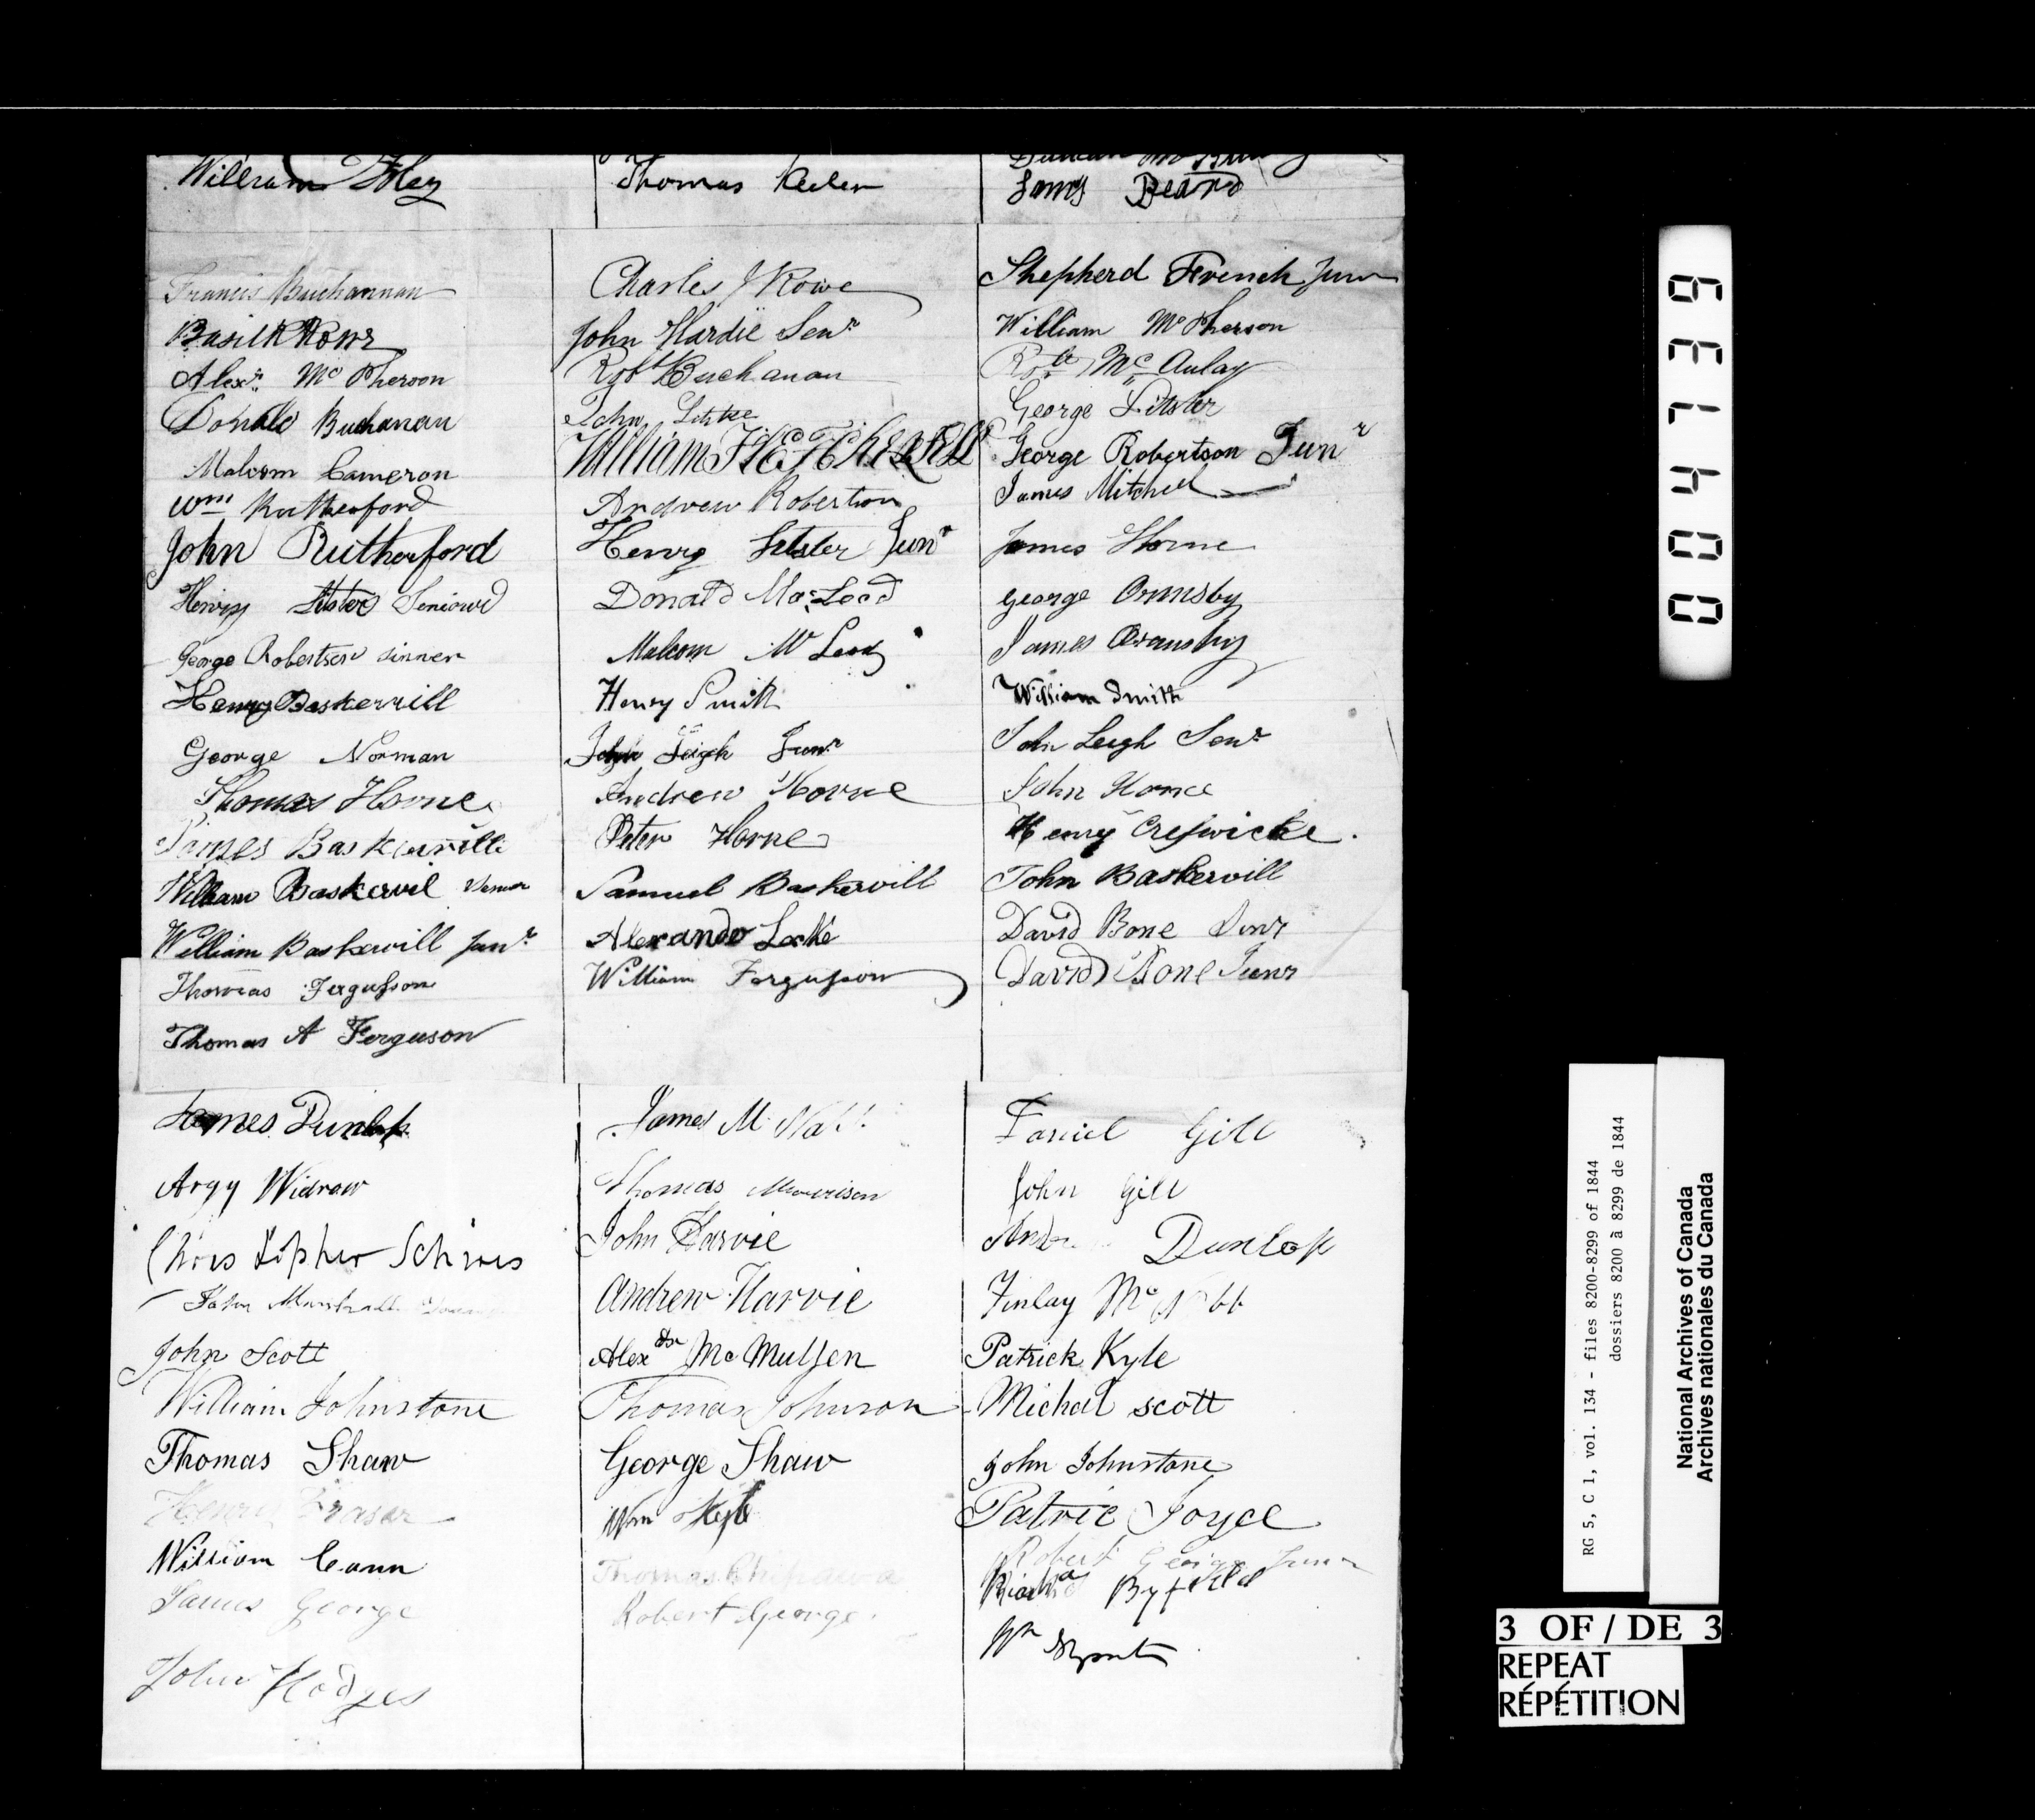 William
Thomas Keeler
James Beard
Francis Buchannan
Charles J Rowe
Shepherd French Junr
Basil R Rowe
John Hardie Senr
William McPherson
Alexr. McPherson
Robt Buchanan
Robt McAulay
Donald Buchanan
John Litster
George Litster
Malcom Cameron
William
George Robertson Junr
Wm Rutherford
Andrew Robertson
James Mitchell
John Rutherford
Henry Litster Junr
James Horne
Henry Litster Seniour
Donald MacLeod
George Ormsby
George Robertson sinner
Malcom McLeod
James Ormsby
Henry Baskervill
Henry Smith
William Smith
George Norman
John Leigh Junr
John Leigh Senr
Thomas Horne
Andrew Horne
John Hance
James Baskerville
Peter Horne
Henry Creswicke.
William Baskervil
Samuel Baskervill
John Baskervill
William Baskervill Junr
Alexander Locke
David Bone Senr
Thomas Fergusson
William Fergusson
David Bone Junr
Thomas A Ferguson
James Dunlop
James McNabb
Daniel Gill
Argy Widraw
Thomas Mourison
John Gill
Chris topher Schires
John Harvie
Andw Dunlop
John Marshall
Andrew Harvie
Finlay McNabb
John Scott
Alexdr McMullen
Patrick Kyle
William Johnstone
Thomas Johnson
Michal scott
Thomas Shaw
George Shaw
John Johnstone
Henry Fraser
Wm Kyle
Patric Joyce
William Cann
Thomas
Robert George Junr
James George
Robert George.
Richard Byfield
John Hodges
Wm
004739
RG 5, C 1, vol. 134 - files 8200-8299 of 1844
dossiers 8200 à 8299 de 1844
National Archives of Canada
Archives nationales du Canada
3 OF / DE 3
REPEAT
RÉPÉTITION